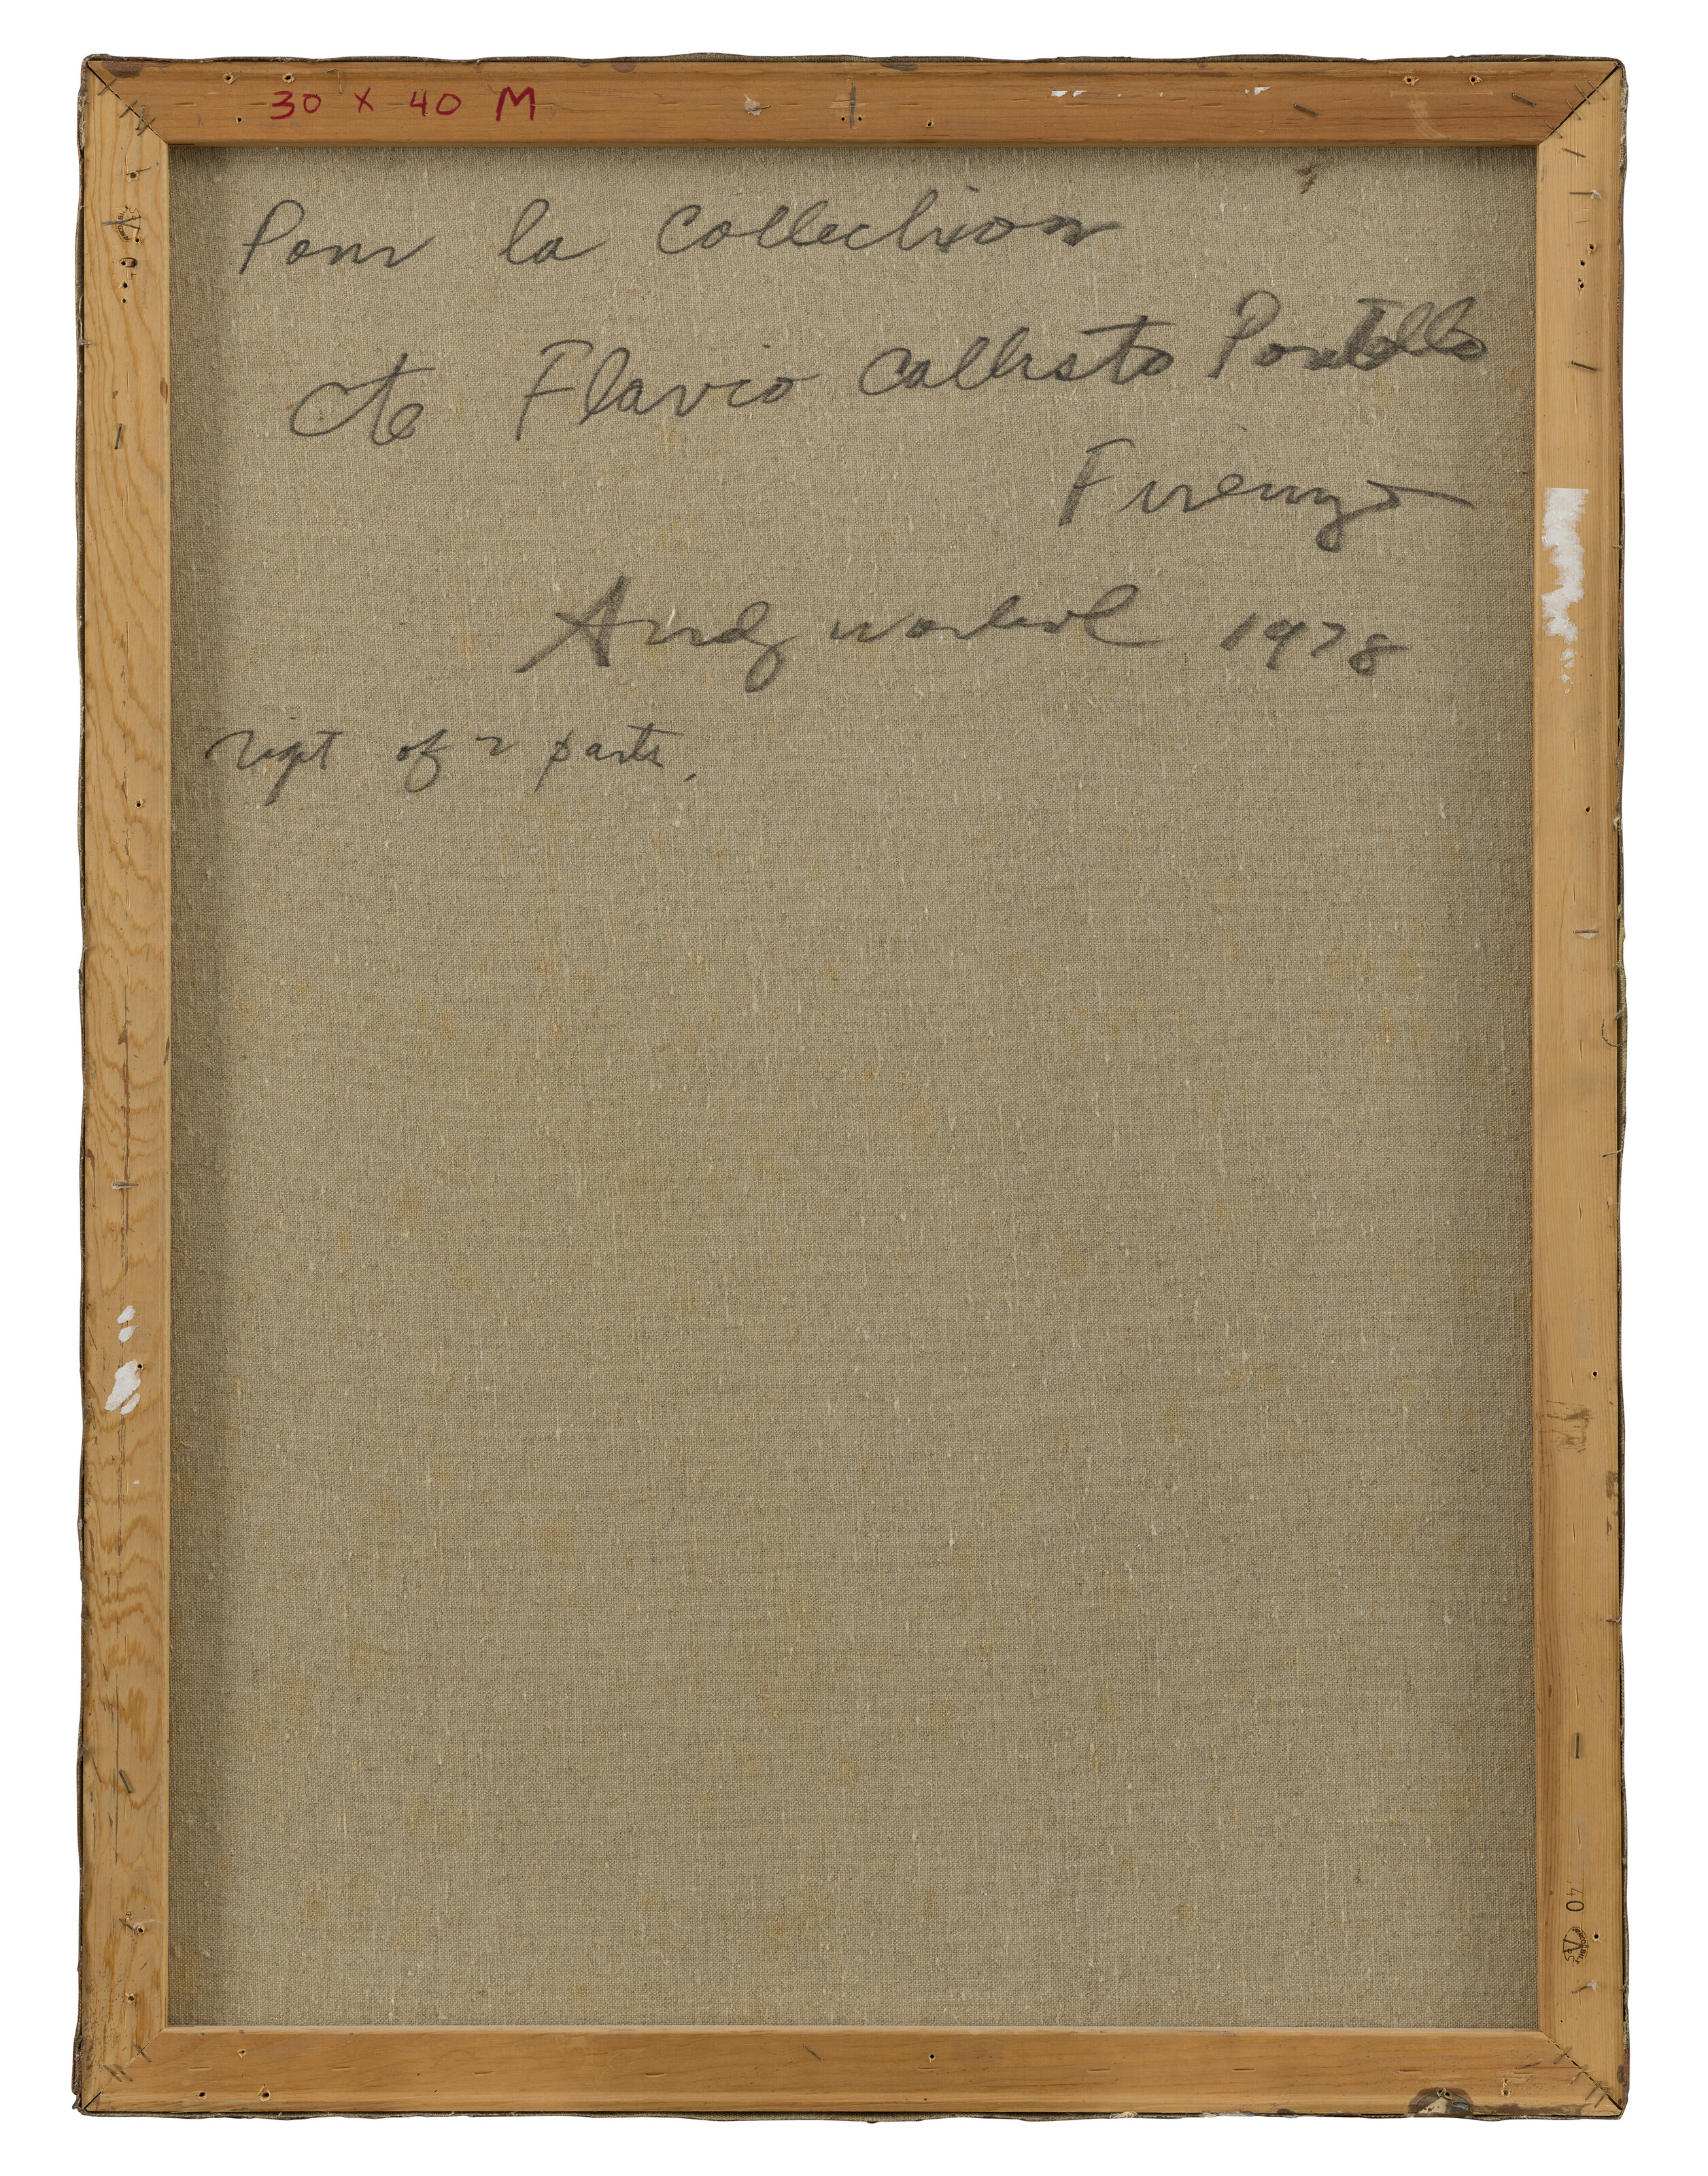 30 x 40 M
Pour la Collection
de Flavio Callisto Pontello
Firenze
Andy Warhol 1978
rigt of 2 parts.
40